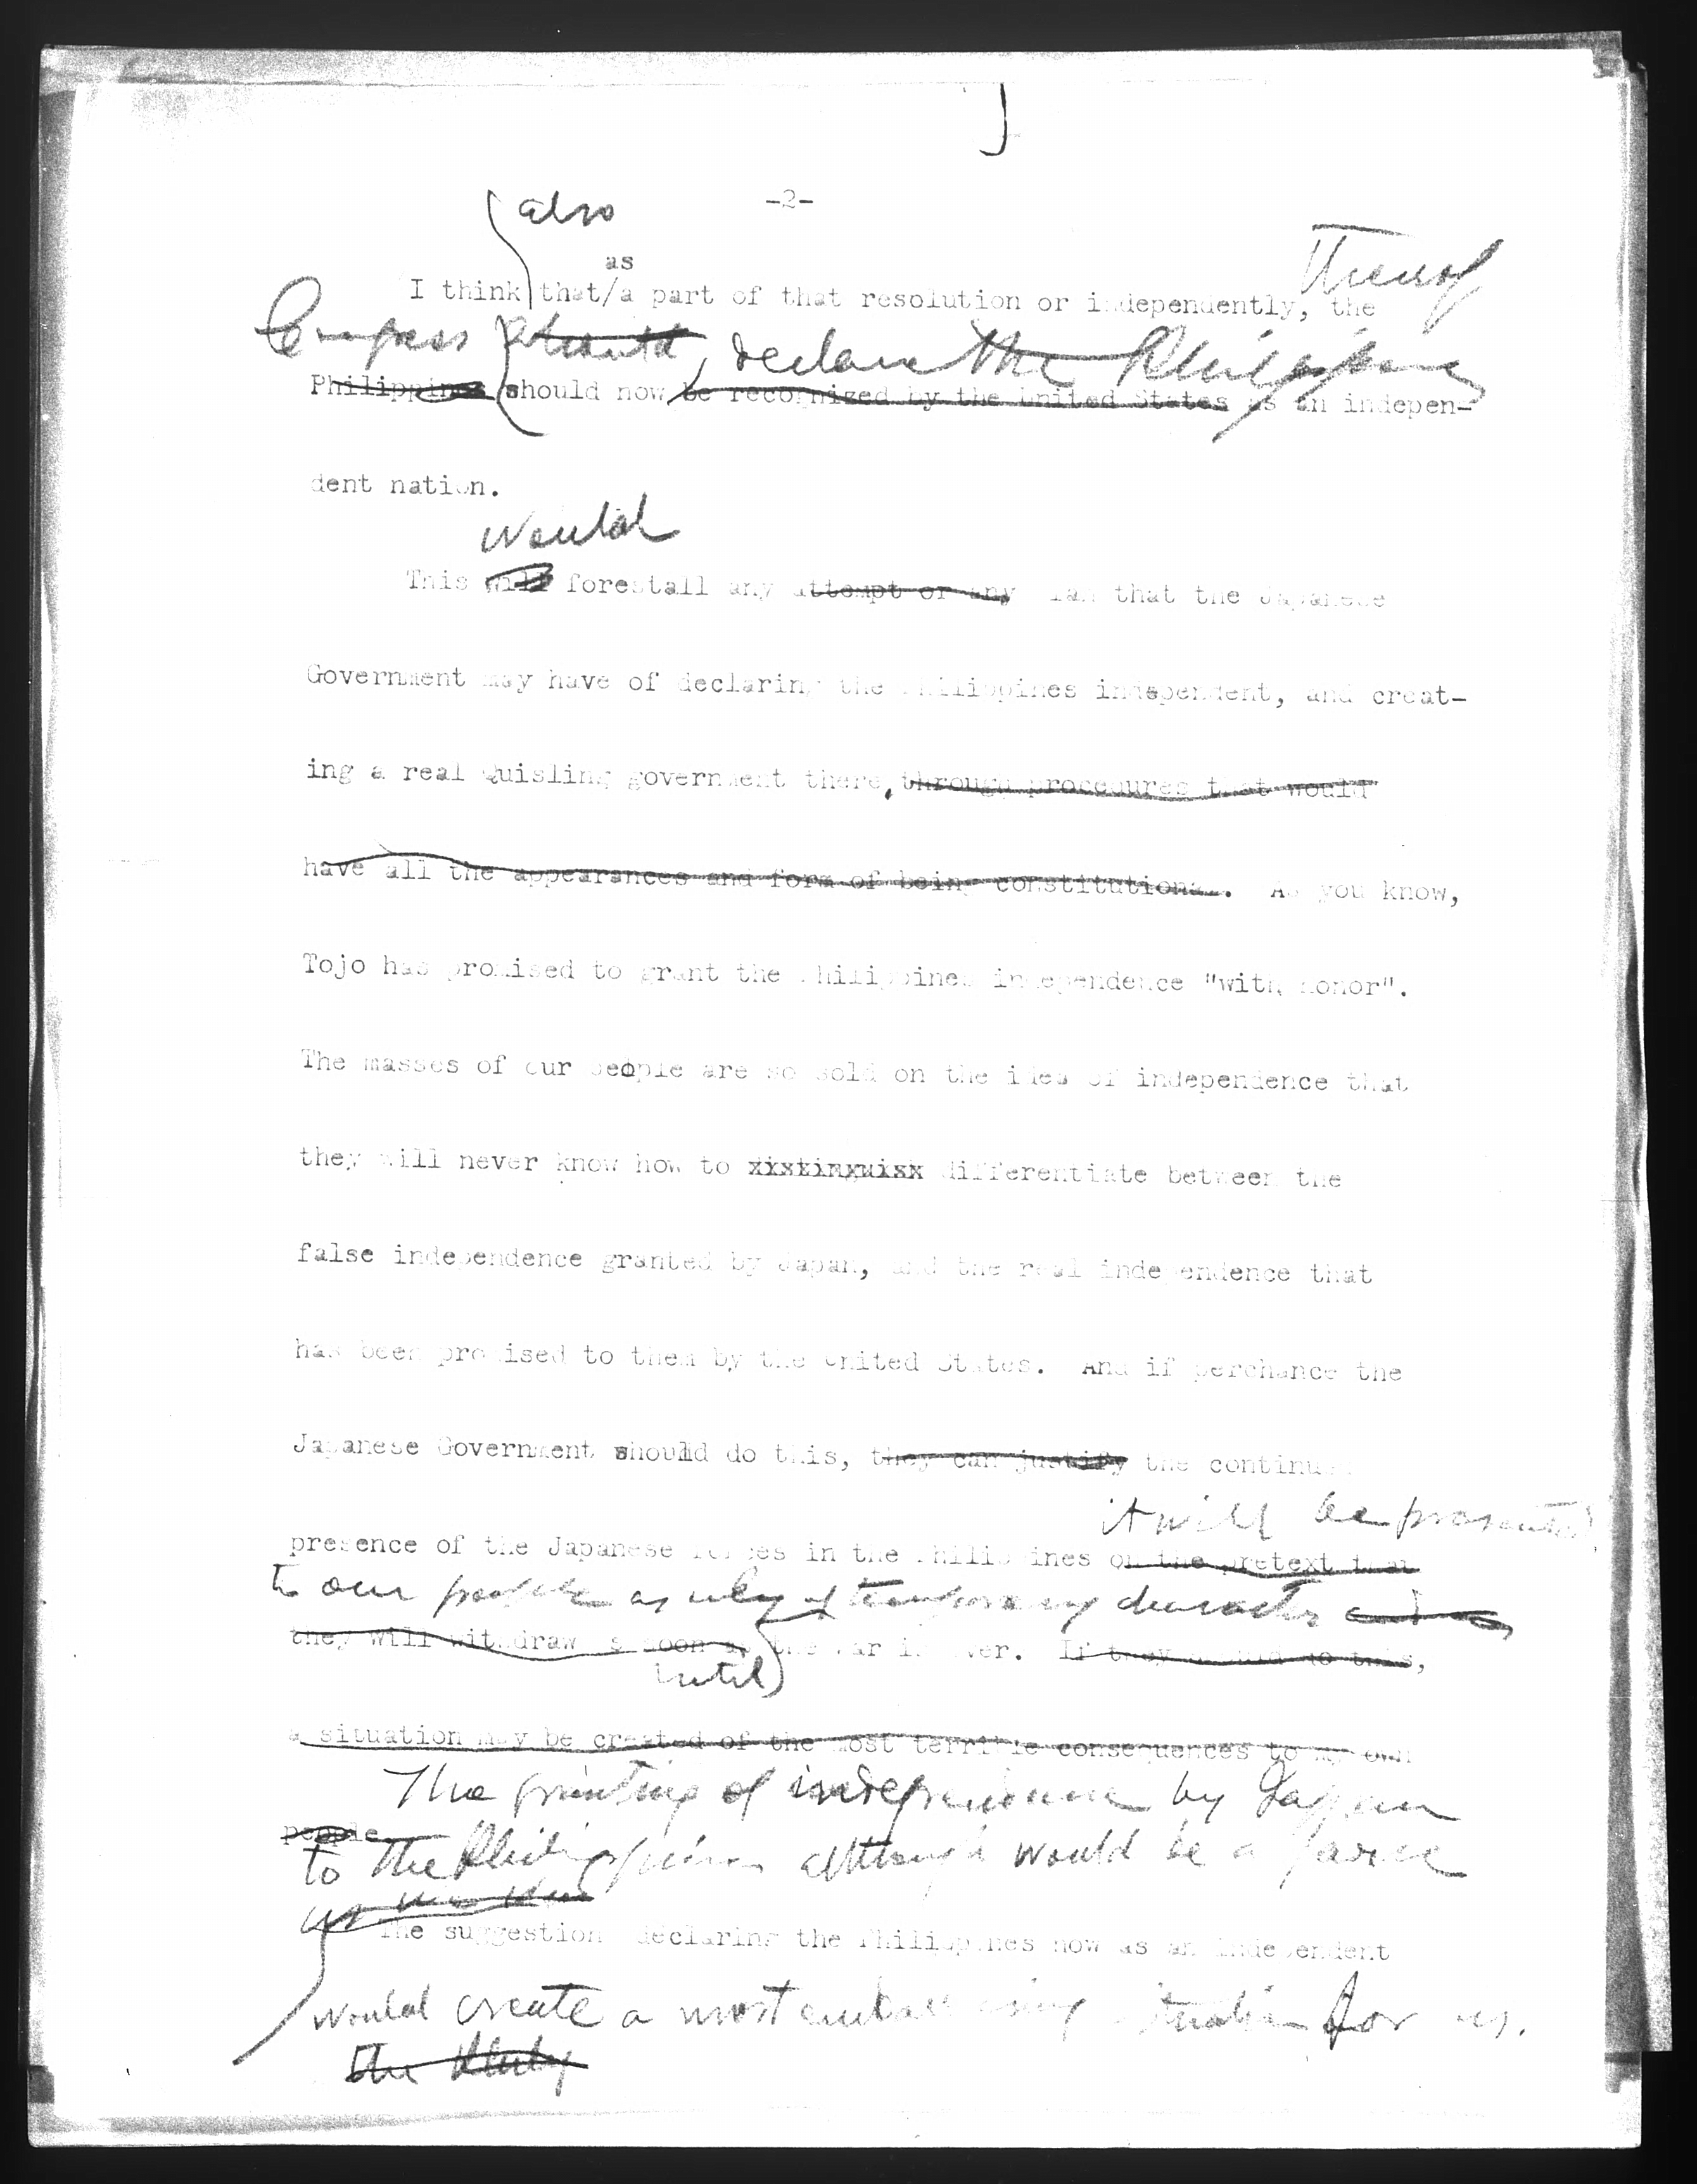 -2-
also
as
I think that/a part of that resolution or independently, the
Congress should, declare the Philippines
Philippines should now be recognized by the United States as an indepen-
dent nation.
would
This will forestall any attempt or any plan that the Japanese
Government may have of declaring the Philippines independent, and creat-
ing a real Quisling government there, through procedures that would
have all the appearances and form of being constitutional. As you know,
Tojo has promised to grant the Philippines independence "with honor".
The masses of our people are so sold on the idea of independence that
they will never know how to xistinxuisx differentiate between the
false independence granted by Japan, and the real independence that
has been promised to them by the United States. And if perchance the
Japanese Government should do this, they can justify the continued
it will be presented
presence of the Japanese forces in the Philippines on the pretext that
to our people as only of temporary character and
they will withdraw as soon as the war is over. If they should do this,
until
a situation may be created of the most terrible consequences to my own
The granting of independence by Japan
people.
to the Philippines although would be a farce
The suggestion declaring the Philippines now as an independent
would create a most embarrassing situation for us.
the